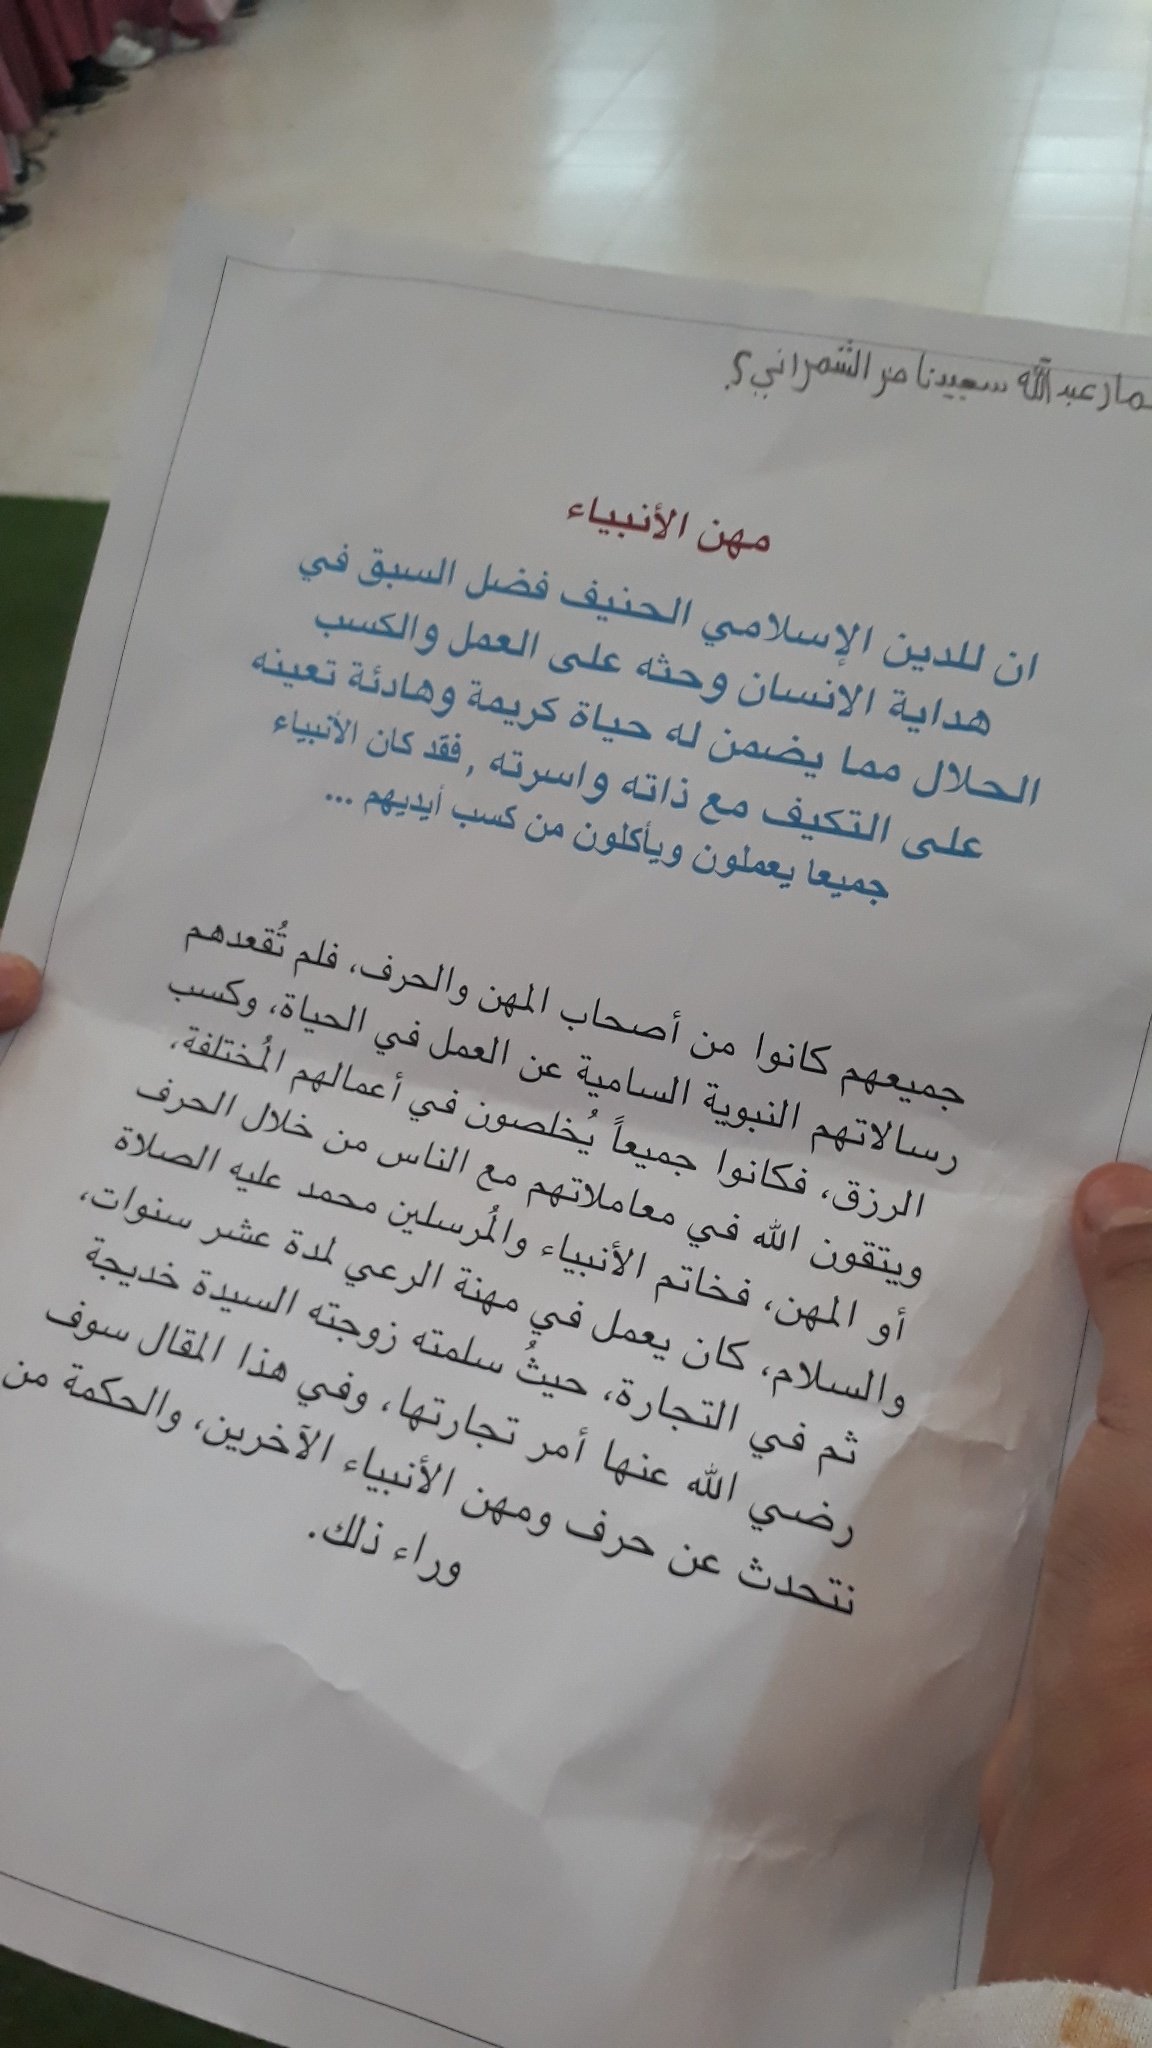 عبدالله سعيد ناصر الشمراني
مهن الأنبياء
ان للدين الإسلامي الحنيف فضل السبق في
هداية الانسان وحثه على العمل والكسب
الحلال مما يضمن له حياة كريمة وهادئة تعينه
على التكيف مع ذاته واسرته ,فقد كان الأنبياء
جميعا يعملون ويأكلون من كسب أيديهم ...
جميعهم كانوا من أصحاب المهن والحرف، فلم تُقعدهم
رسالاتهم النبوية السامية عن العمل في الحياة، وكسب
الرزق، فكانوا جميعاً يُخلصون في أعمالهم المُختلفة،
ويتقون الله في معاملاتهم مع الناس من خلال الحرف
أو المهن، فخاتم الأنبياء والمُرسلين محمد عليه الصلاة
والسلام، كان يعمل في مهنة الرعي لمدة عشر سنوات،
ثم في التجارة، حيثُ سلمته زوجته السيدة خديجة
رضي الله عنها أمر تجارتها، وفي هذا المقال سوف
نتحدث عن حرف ومهن الأنبياء الآخرين، والحكمة من
وراء ذلك.